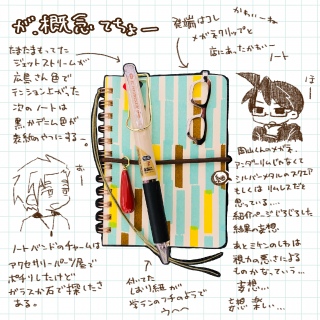 が、概念てちょー
発端はコレ
メガネクリップと
店にあったかわいーノート
かわいーね
ほー
たまたまもってた
ジェットストリームが
広島さん色で
テンション上がった
次のノートは
黒かデニム色が
表紙のやつにするー。
むー
岡山くんのメガネ、
アンダーリムじゃなくて
シルバーメタルのスクエア
もしくはリムレスだと
思っている…。
紹介ページじろじろした
結果の妄想
あとミケンのしわは
視力の悪さによる
ものかなっていう…
妄想…
妄想楽しい…
ノートバンドのチャームは
アクセサリーパーツ屋で
ポチりしたけど
ガラスか石で探したさ
ある。
付けてた
しおり紐が
学ランのフチのようで
うへへ